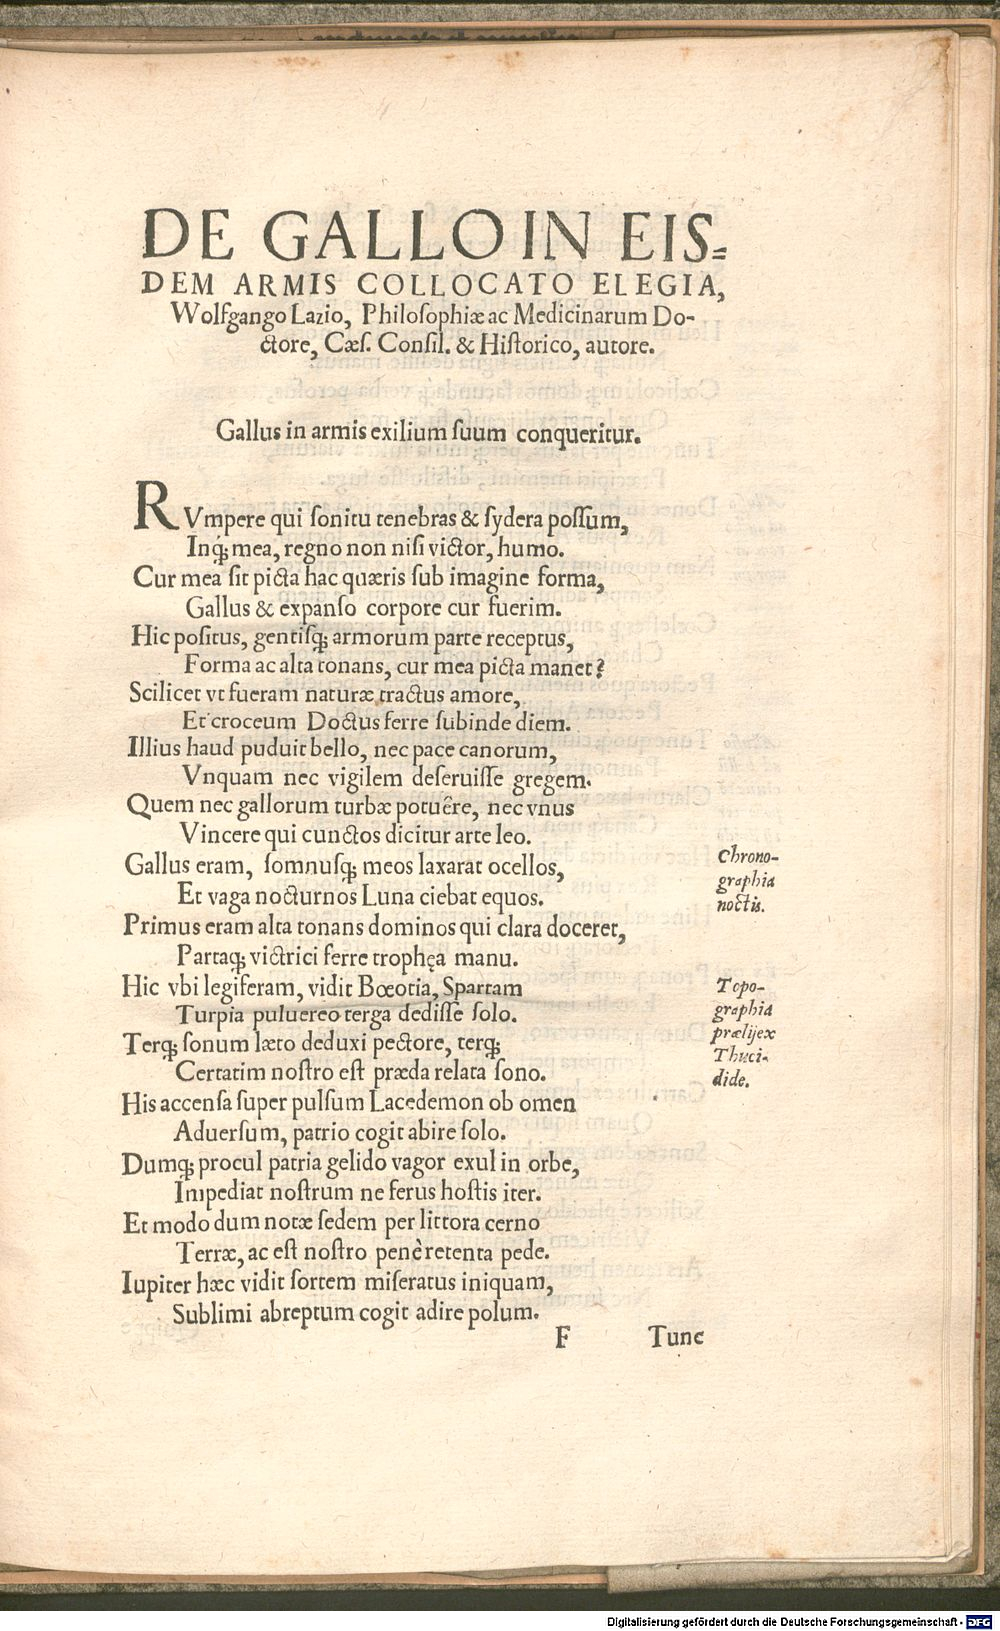 DE GALLO IN EIS=
DEM ARMIS COLLOCATO ELEGIA,
Wolfgango Lazio, Philosophiæ ac Medicinarum Do-
ctore, Cæs. Consil. & Historico, autore.
Gallus in armis exilium suum conqueritur.
RVmpere qui sonitu tenebras & sydera possum,
Inq; mea, regno non nisi victor, humo.
Cur mea sit picta hac quæris sub imagine forma,
Gallus & expanso corpore cur fuerim.
Hic positus, gentisq; armorum parte receptus,
Forma ac alta tonans, cur mea picta manet?
Scilicet vt fueram naturæ tractus amore,
Et croceum Doctus ferre subinde diem.
Illius haud puduit bello, nec pace canorum,
Vnquam nec vigilem deseruisse gregem.
Quem nec gallorum turbæ potuêre, nec vnus
Vincere qui cunctos dicitur arte leo.
Gallus eram, somnusq; meos laxarat ocellos,
Et vaga nocturnos Luna ciebat equos.
Chrono-
graphia
noctis.
Primus eram alta tonans dominos qui clara doceret,
Partaq; victrici ferre trophęa manu.
Hic vbi legiferam, vidit Bœotia, Spartam
Turpia puluereo terga dedisse solo.
Terq; sonum læto deduxi pectore, terq;
Certatim nostro est præda relata sono.
Topo-
graphia
prælij ex
Thuci-
dide.
His accensa super pulsum Lacedemon ob omen
Aduersum, patrio cogit abire solo.
Dumq; procul patria gelido vagor exul in orbe,
Impediat nostrum ne ferus hostis iter.
Et modo dum notæ sedem per littora cerno
Terræ, ac est nostro penè retenta pede.
Iupiter hæc vidit sortem miseratus iniquam,
Sublimi abreptum cogit adire polum.
F Tunc
Digitalisierung gefördert durch die Deutsche Forschungsgemeinschaft - DFG